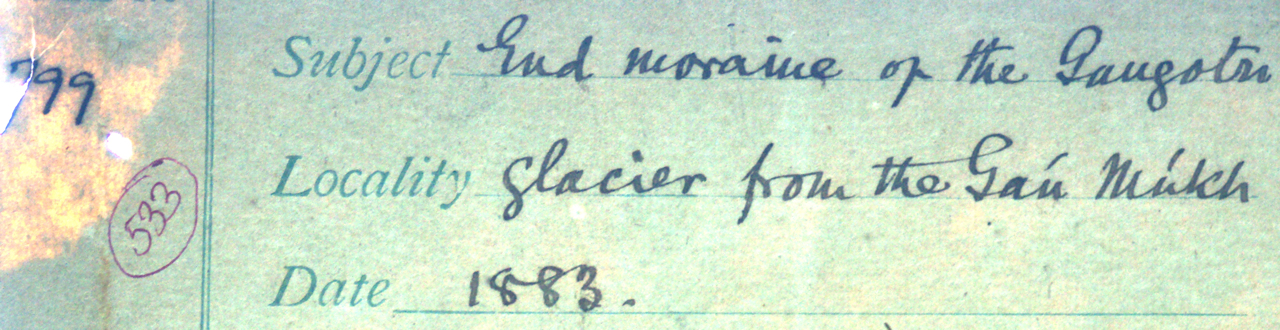 799
533
Subject End moraine of the Gangotri
Locality glacier from the Gaú Múkh
Date 1883.